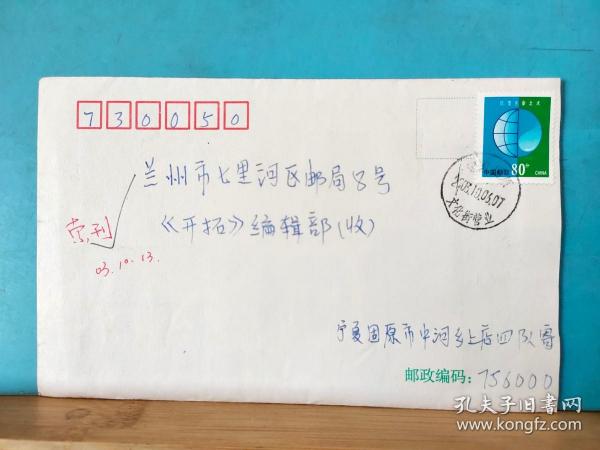 730050
中国邮政
80分
CHINA
2003.10.03.07
文化街营业
兰州市七里河区邮局8号
《开拓》编辑部(收)
索刊
03.10.13.
宁夏固原市中河乡上店四队寄
邮政编码:756000
孔夫子旧书网
www.kongfz.com